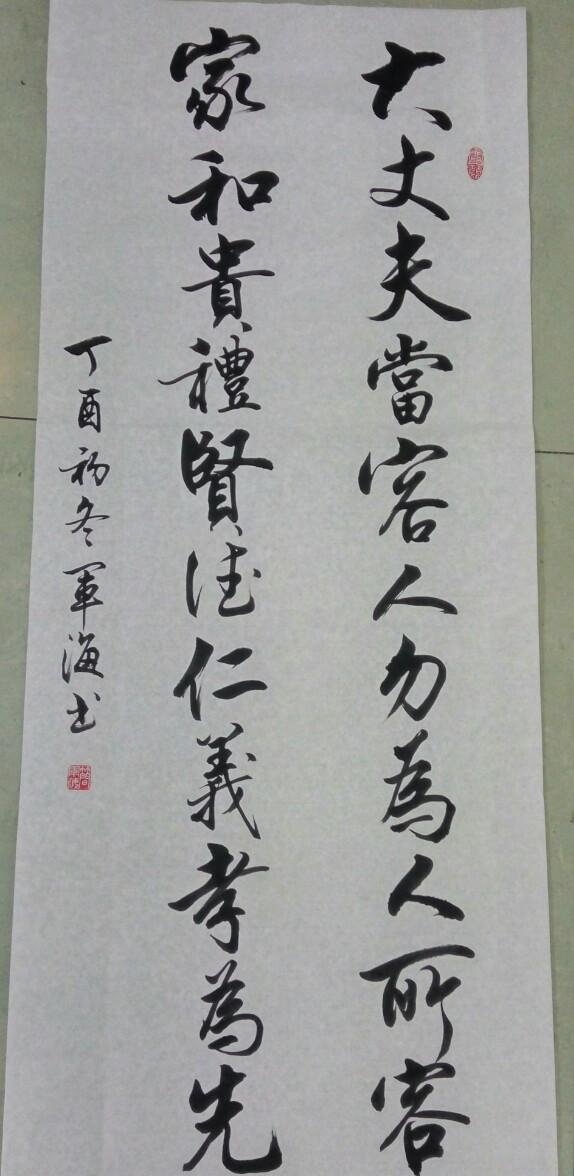 大丈夫當容人勿為人所容
家和貴禮賢德仁義孝為先
丁酉初冬軍海书